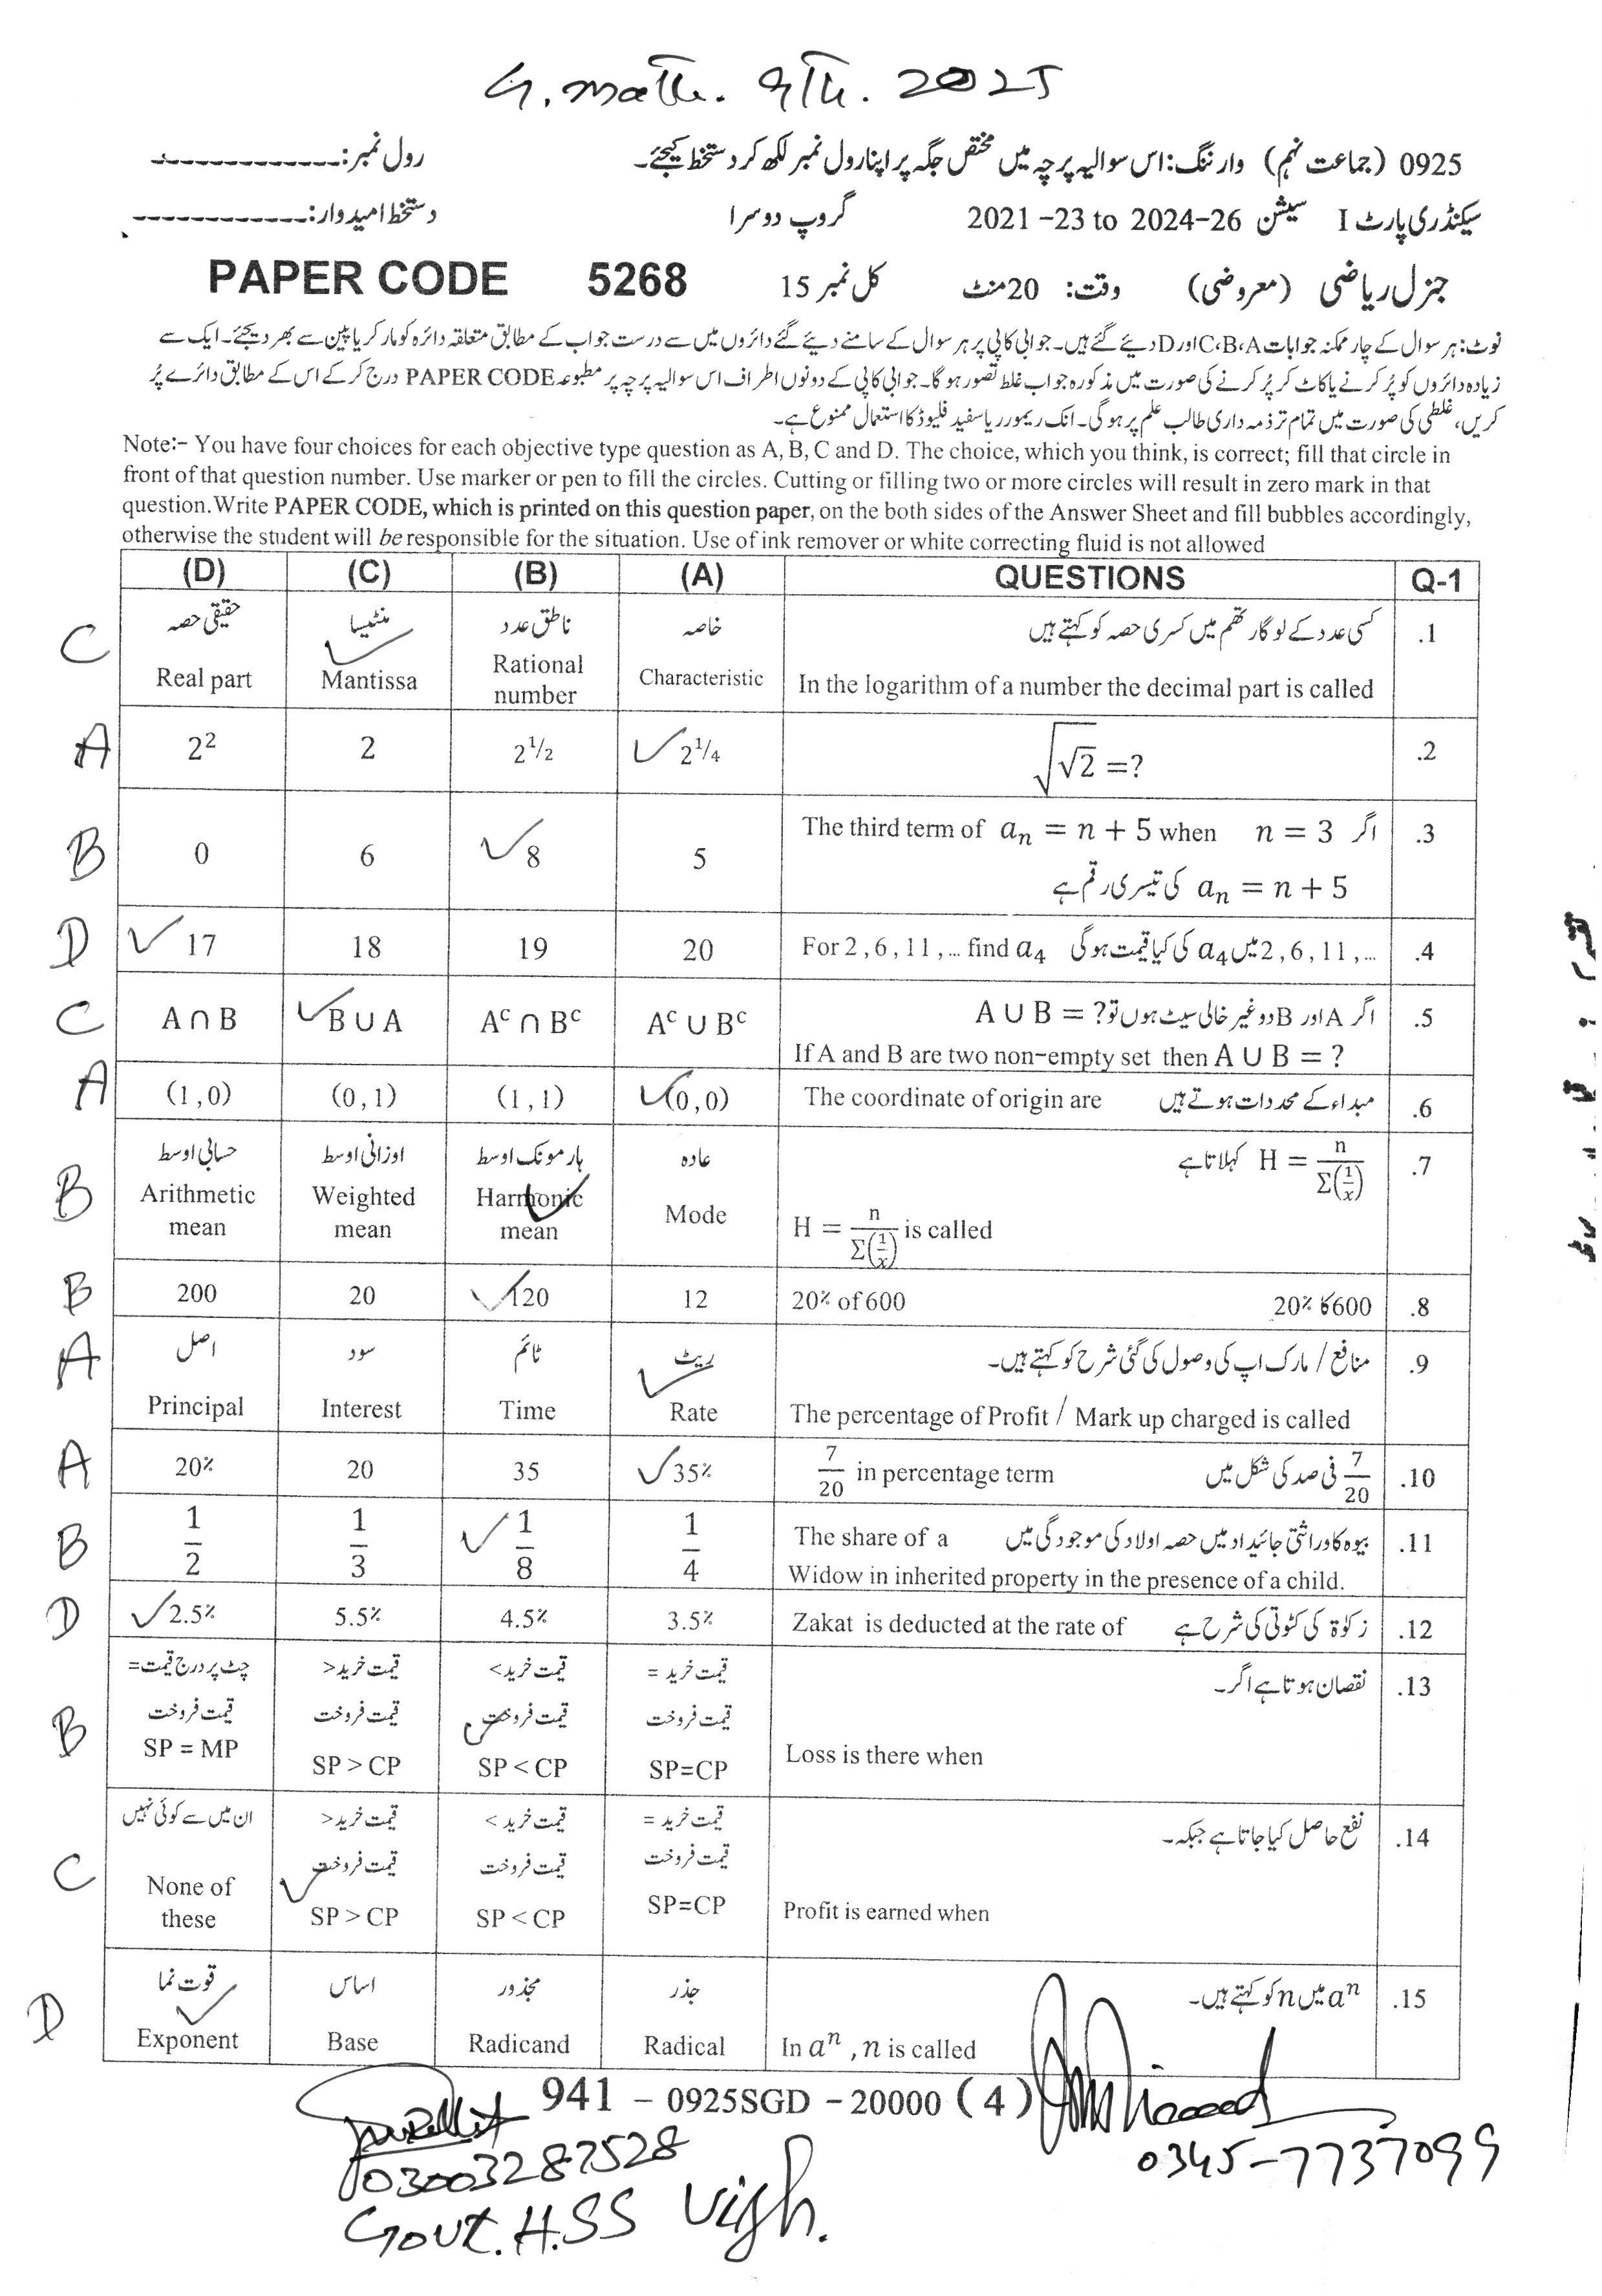 G. math. 9Th. 2025
0925 (جماعت نہم) وارننگ: اس سوالیہ پرچہ میں مختص جگہ پر اپنا رول نمبر لکھ کر دستخط کیجئے۔ رول نمبر: ------------
سیکنڈری پارٹ I سیشن 2021-23 to 2024-26 گروپ دوسرا دستخط امیدوار: ------------
جنرل ریاضی (معروضی) وقت: 20 منٹ کل نمبر 15 PAPER CODE 5268
نوٹ: ہر سوال کے چار ممکنہ جوابات A، B، C اور D دیئے گئے ہیں۔ جوابی کاپی پر ہر سوال کے سامنے دیئے گئے دائروں میں سے درست جواب کے مطابق متعلقہ دائرہ کو مارکر یا پین سے بھر دیجئے۔ ایک سے
زیادہ دائروں کو پُر کرنے یا کاٹ کر پُر کرنے کی صورت میں مذکورہ جواب غلط تصور ہو گا۔ جوابی کاپی کے دونوں اطراف اس سوالیہ پرچہ پر مطبوعہ PAPER CODE درج کر کے اس کے مطابق دائرے پُر
کریں، غلطی کی صورت میں تمام تر ذمہ داری طالب علم پر ہو گی۔ انک ریمور ریا سفید فلیوڈ کا استعمال ممنوع ہے۔
Note:- You have four choices for each objective type question as A, B, C and D. The choice, which you think, is correct; fill that circle in
front of that question number. Use marker or pen to fill the circles. Cutting or filling two or more circles will result in zero mark in that
question. Write PAPER CODE, which is printed on this question paper, on the both sides of the Answer Sheet and fill bubbles accordingly,
otherwise the student will be responsible for the situation. Use of ink remover or white correcting fluid is not allowed
(D) (C) (B) (A) QUESTIONS Q-1
حقیقی حصہ منٹیسا ناطق عدد خاصہ کسی عدد کے لوگارتھم میں کسری حصہ کو کہتے ہیں .1
C Real part ✓ Mantissa Rational number Characteristic In the logarithm of a number the decimal part is called
A 2² 2 2^1/2 ✓ 2^1/4 √√2 =? .2
The third term of aₙ = n + 5 when n = 3 اگر .3
B 0 6 ✓ 8 5 aₙ = n + 5 کی تیسری رقم ہے
D ✓ 17 18 19 20 For 2, 6, 11, ... find a₄ 2, 6, 11, ... میں a₄ کی کیا قیمت ہو گی .4
C A ∩ B ✓ B ∪ A Aᶜ ∩ Bᶜ Aᶜ ∪ Bᶜ اگر A اور B دو غیر خالی سیٹ ہوں تو A ∪ B = ? .5
If A and B are two non-empty set then A ∪ B = ?
A (1,0) (0,1) (1,1) ✓ (0,0) The coordinate of origin are مبداء کے محددات ہوتے ہیں .6
حسابی اوسط اوزانی اوسط ہارمونک اوسط عادہ H = n/Σ(1/x) کہلاتا ہے .7
B Arithmetic mean Weighted mean ✓ Harmonic mean Mode H = n/Σ(1/x) is called
B 200 20 ✓ 120 12 20% of 600 600 کا 20% .8
اصل سود ٹائم ریٹ منافع / مارک اپ کی وصول کی گئی شرح کو کہتے ہیں۔ .9
A Principal Interest Time ✓ Rate The percentage of Profit / Mark up charged is called
A 20% 20 35 ✓ 35% 7/20 in percentage term 7/20 فی صد کی شکل میں .10
B 1/2 1/3 ✓ 1/8 1/4 The share of a بیوہ کا وراثتی جائیداد میں حصہ اولاد کی موجودگی میں .11
Widow in inherited property in the presence of a child.
D ✓ 2.5% 5.5% 4.5% 3.5% Zakat is deducted at the rate of زکوٰۃ کی کٹوتی کی شرح ہے .12
چٹ پر درج قیمت = قیمت خرید > قیمت خرید < قیمت خرید = نقصان ہوتا ہے اگر۔ .13
قیمت فروخت قیمت فروخت قیمت فروخت قیمت فروخت
B SP = MP SP > CP ✓ SP < CP SP=CP Loss is there when
ان میں سے کوئی نہیں قیمت خرید > قیمت خرید < قیمت خرید = نفع حاصل کیا جاتا ہے جبکہ۔ .14
قیمت فروخت قیمت فروخت قیمت فروخت
C None of these ✓ SP > CP SP < CP SP=CP Profit is earned when
قوت نما اساس مجذور جذر aⁿ میں n کو کہتے ہیں۔ .15
D ✓ Exponent Base Radicand Radical In aⁿ, n is called
941 – 0925SGD – 20000 (4)
03003287528
0345-7737099
Govt. H.SS Vijh.